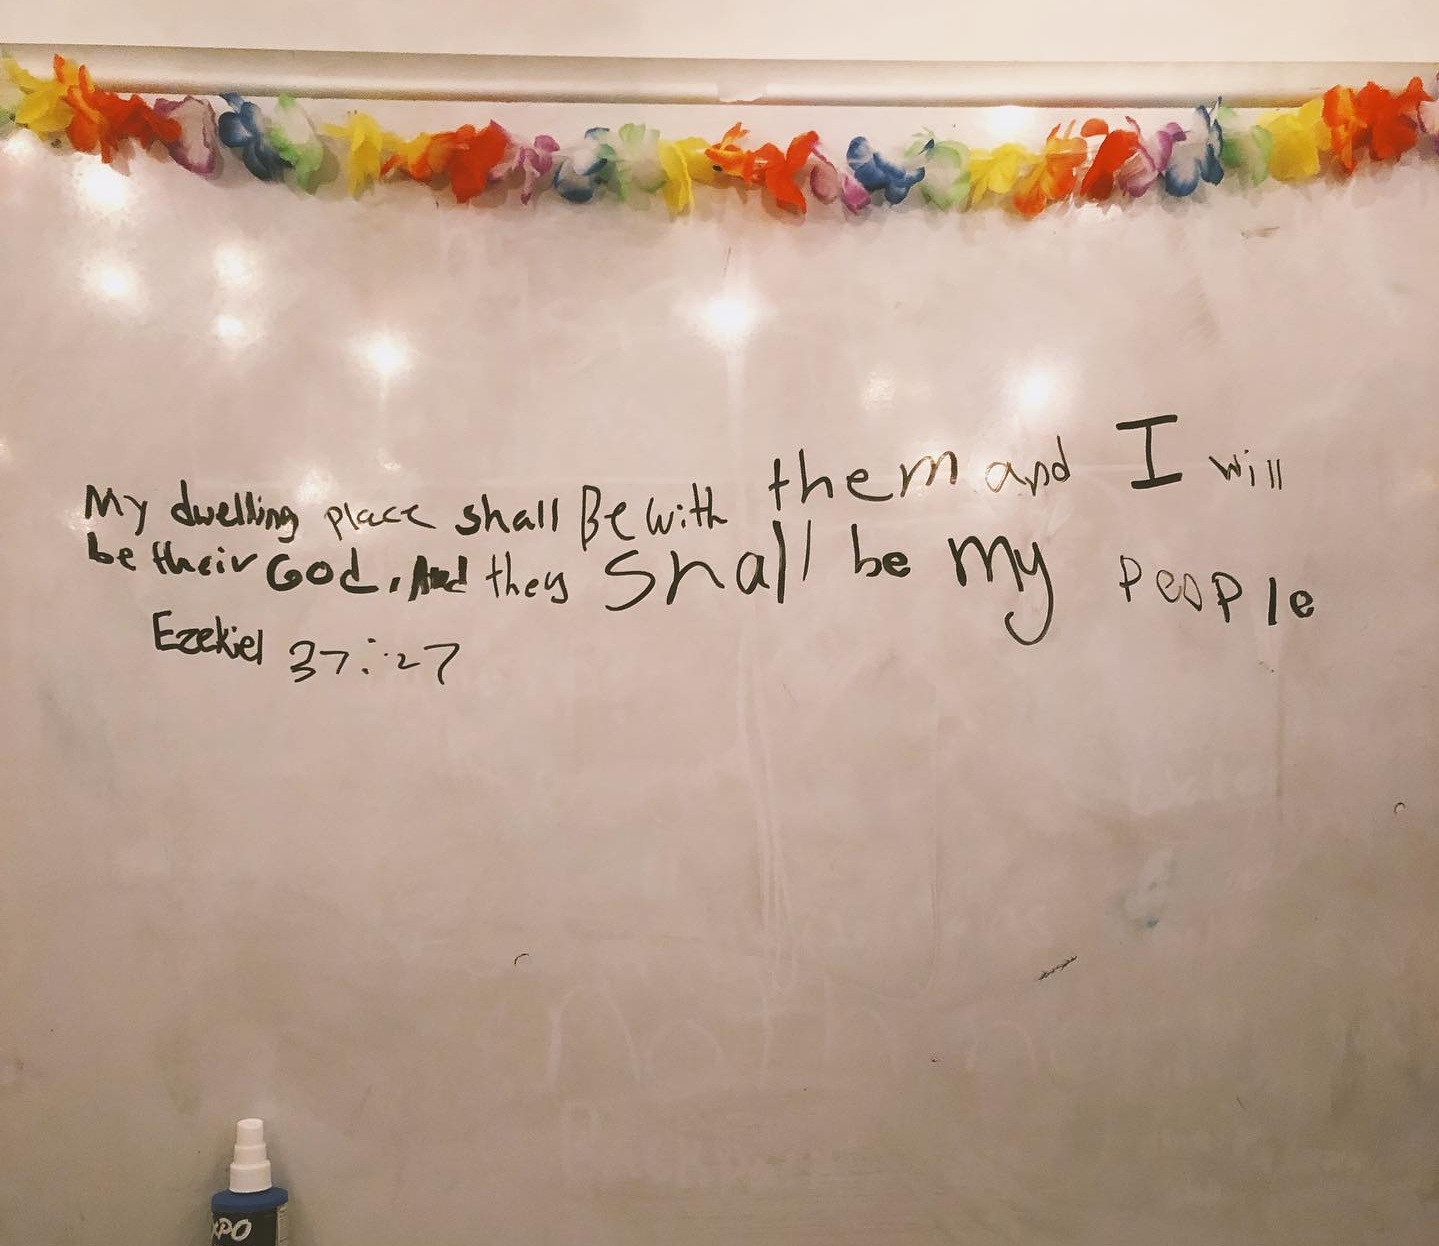 My dwelling place shall Be with them and I will
be their God. And they shall be my PeoPle
Ezekiel 37:27
XPO